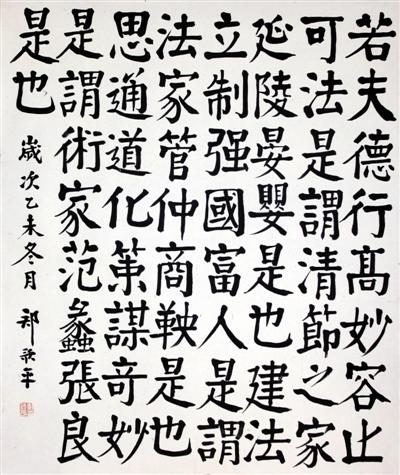 若夫德行髙妙容止
可法是謂清節之家
延陵晏嬰是也建法
立制强國富人是謂
法家管仲商鞅是也
思通道化策謀奇妙
是謂術家范蠡張良
是也
歲次乙未冬月 鄭平